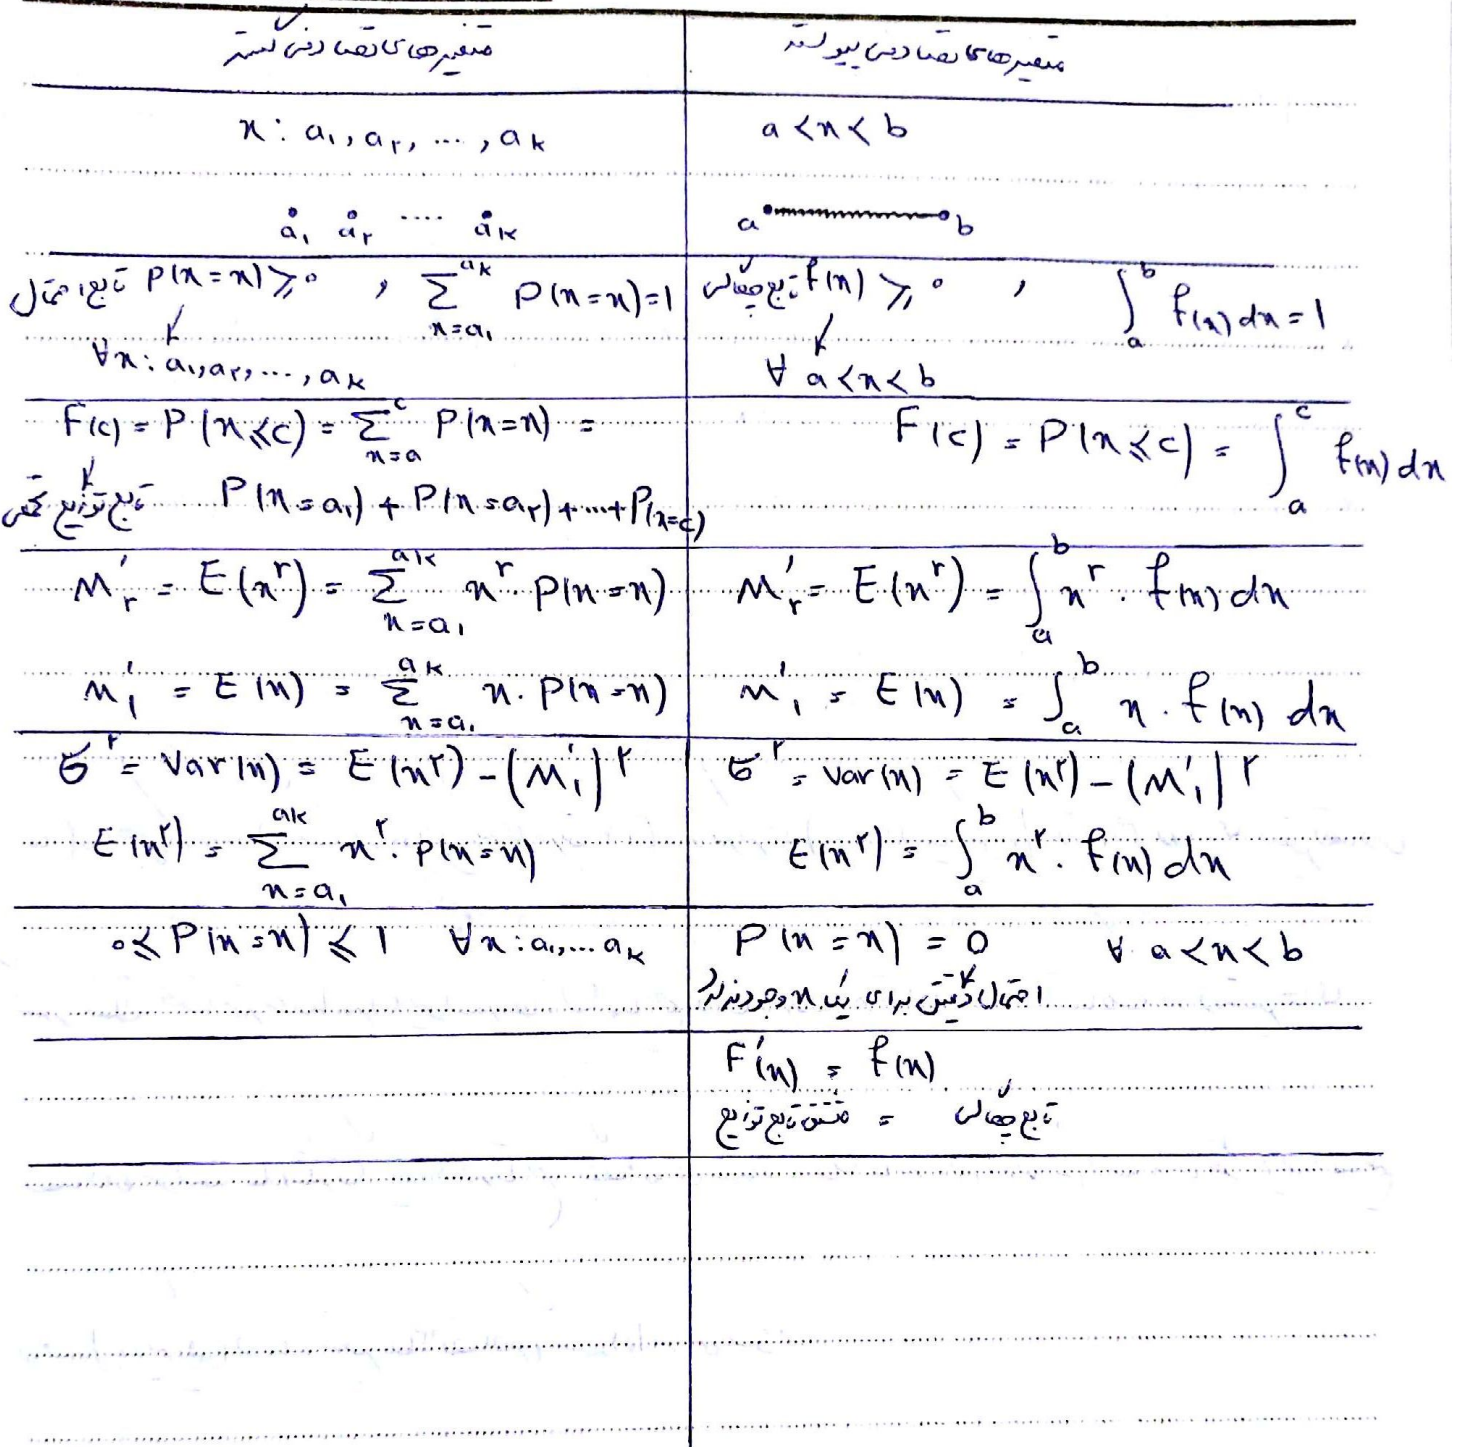 متغیرهای تصادفی گسسته
متغیرهای تصادفی پیوسته
x: a₁, a₂, ..., aₖ
a < x < b
a₁ a₂ .... aₖ
a b
تابع احتمال P(x=x) ≥ 0 , Σ_{x=a₁}^{aₖ} P(x=x)=1
∀x: a₁, a₂, ..., aₖ
تابع چگالی f(x) ≥ 0 , ∫_a^b f(x) dx = 1
∀ a < x < b
F(c) = P(x ≤ c) = Σ_{x=a}^{c} P(x=x) =
تابع توزیع تجمعی P(x=a₁) + P(x=a₂) + ... + P(x=c)
F(c) = P(x ≤ c) = ∫_a^c f(x) dx
M'_r = E(x^r) = Σ_{x=a₁}^{aₖ} x^r . P(x=x)
M'₁ = E(x) = Σ_{x=a₁}^{aₖ} x . P(x=x)
M'_r = E(x^r) = ∫_a^b x^r . f(x) dx
M'₁ = E(x) = ∫_a^b x . f(x) dx
σ² = Var(x) = E(x²) - (M'₁)²
E(x²) = Σ_{x=a₁}^{aₖ} x² . P(x=x)
σ² = Var(x) = E(x²) - (M'₁)²
E(x²) = ∫_a^b x² . f(x) dx
0 ≤ P(x=x) ≤ 1 ∀x: a₁, ... aₖ
P(x=x) = 0 ∀ a < x < b
احتمال دقیق برای یک x وجود ندارد
F'(x) = f(x)
تابع چگالی = مشتق تابع توزیع